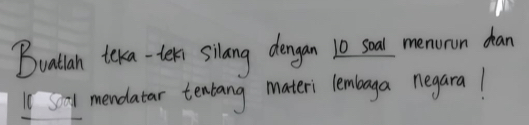 Buatlah teka-teki silang dengan 10 soal menurun dan
10 soal mendatar tentang materi lembaga negara!